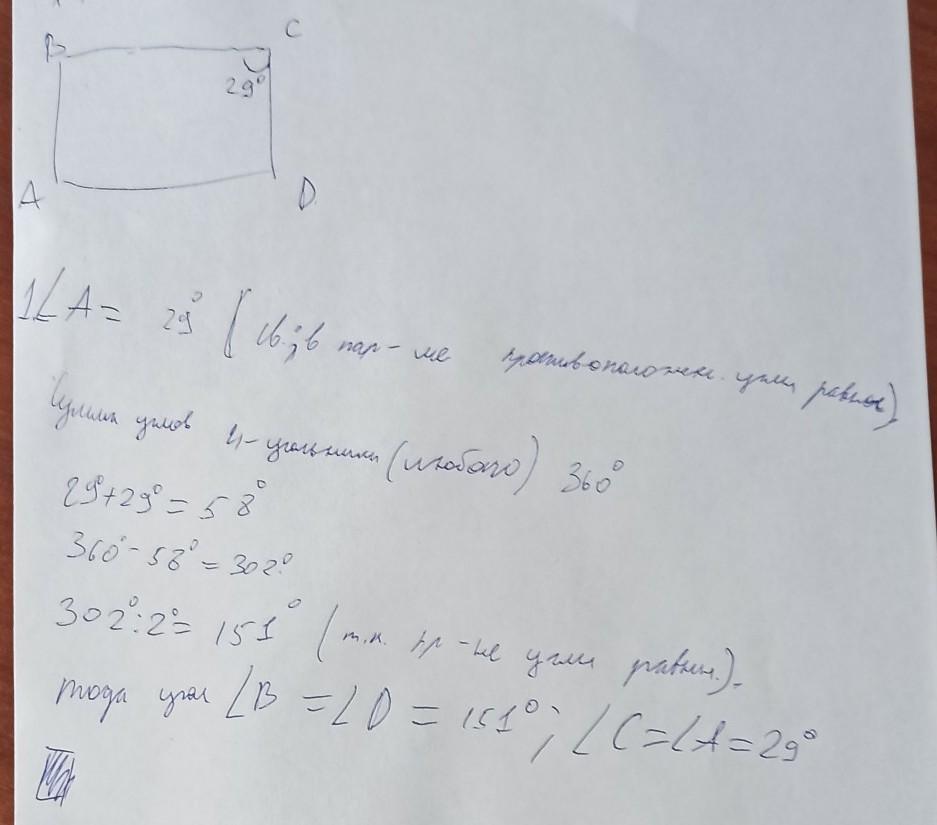 B
C
29°
A
D
1∠A = 29° (св. ; в пар-ме противополож. углы равны)
Сумма углов 4-угольника (любого) 360°
29°+29°=58°
360°-58°=302°
302°:2°=151° (т.к. пр-ые углы равны).
тогда угол ∠B = ∠D = 151°; ∠C=∠A=29°